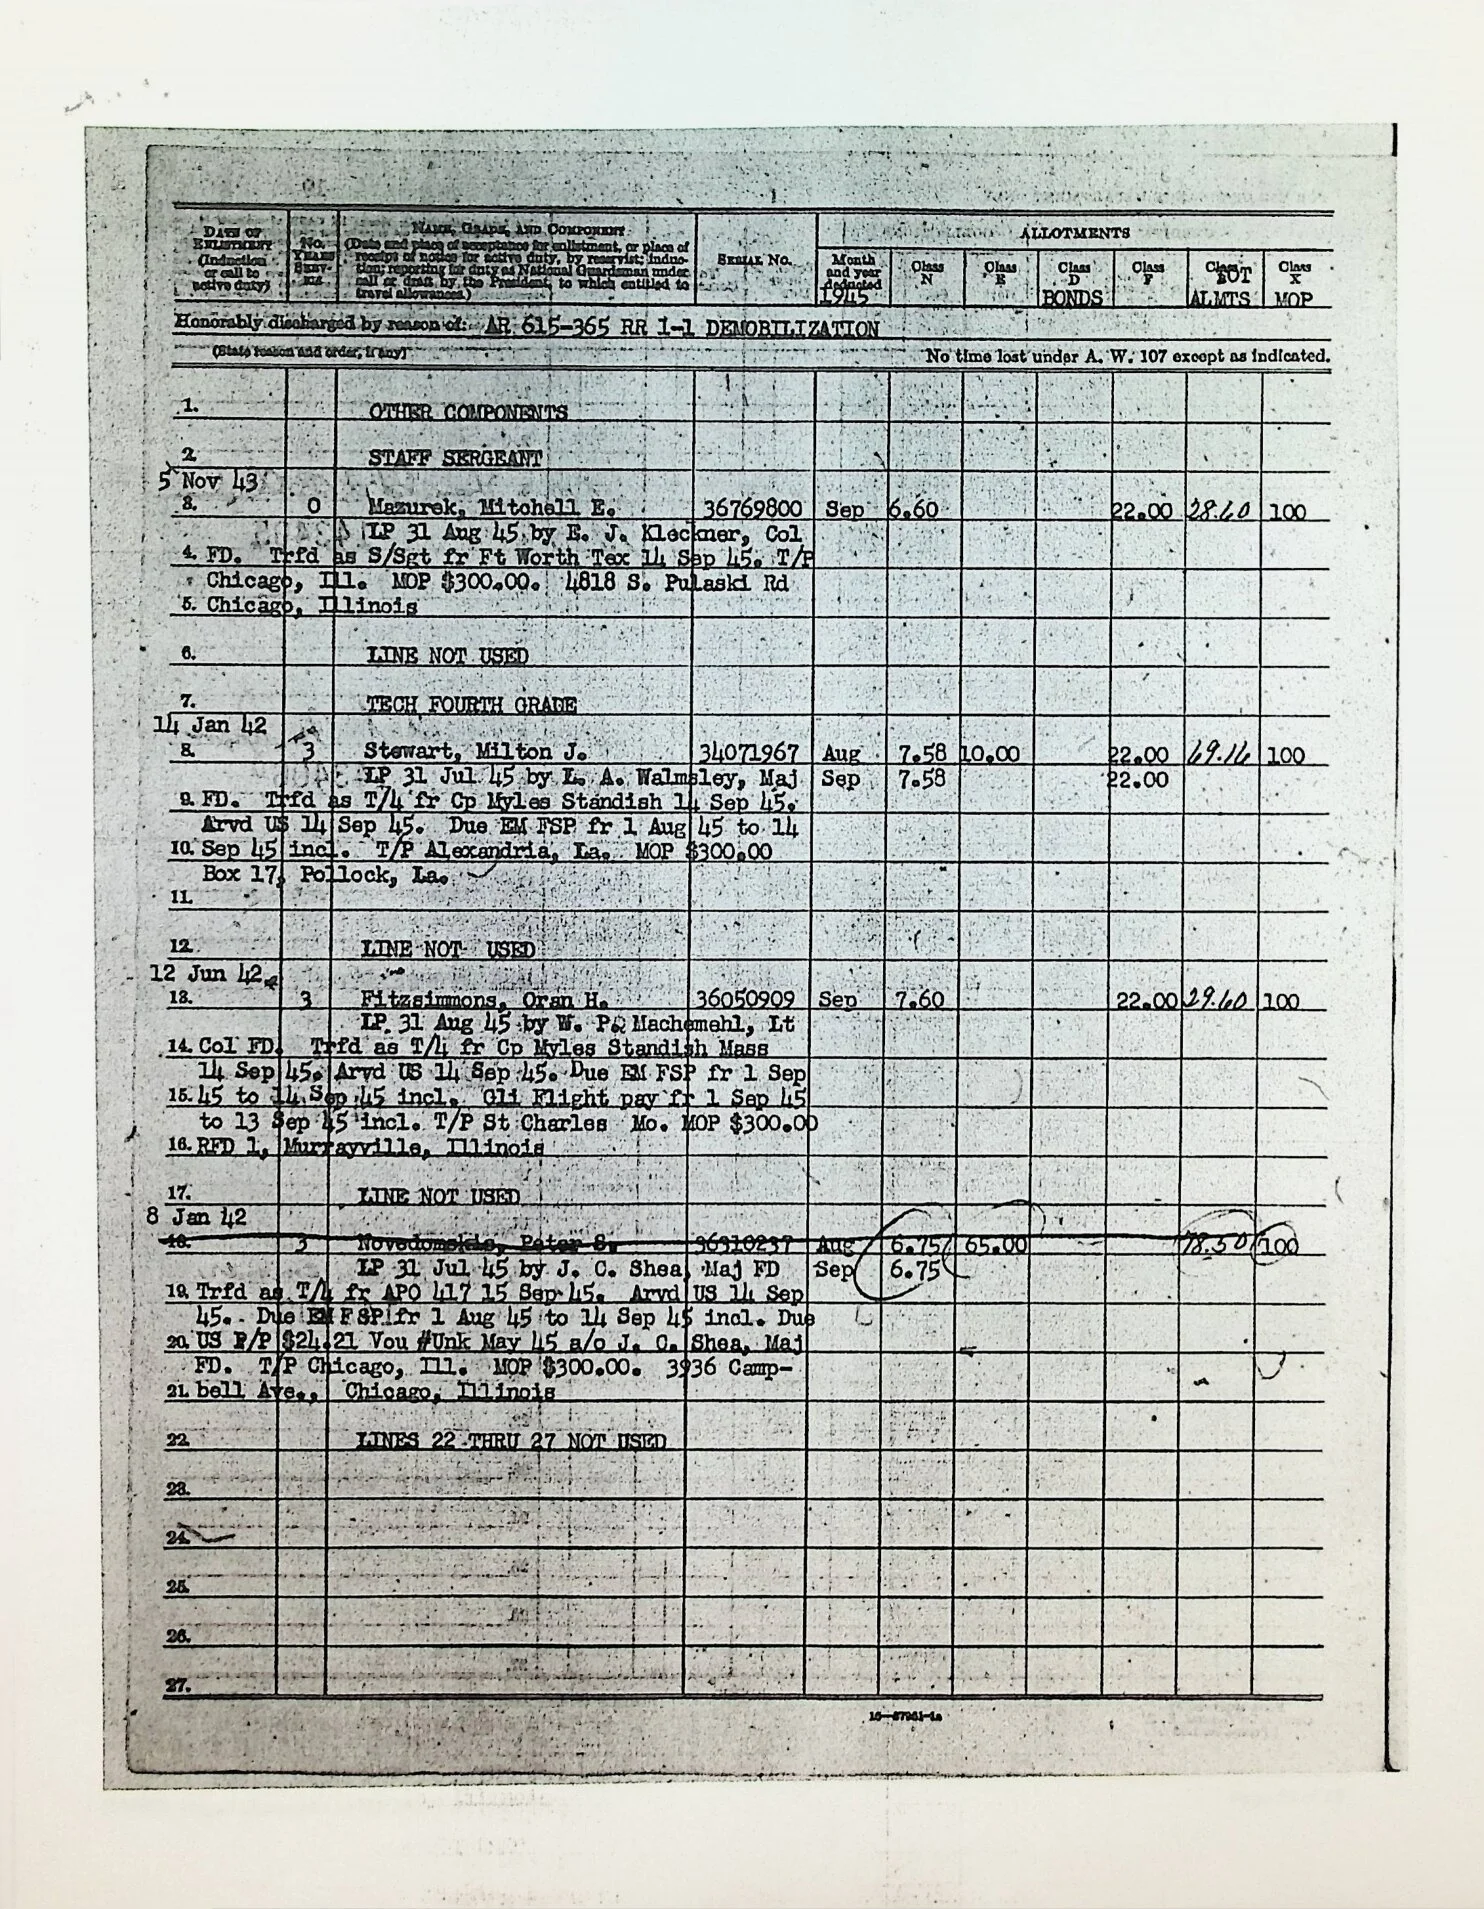 DATE OF ENLISTMENT (Induction or call to active duty)
No. YEARS SERVICE
NAME, GRADE, AND COMPONENT
(Date and place of acceptance for enlistment, or place of receipt of notice for active duty, by reservist; induction; reporting for duty as National Guardsman under call or draft by the President, to which entitled to travel allowances.)
SERIAL NO.
ALLOTMENTS
Month and year deducted 1945
Class N
Class E
Class D BONDS
Class F
Class TOT ALMTS
Class X MOP
Honorably discharged by reason of: AR 615-365 RR 1-1 DEMOBILIZATION
(State reason and order, if any)
No time lost under A. W. 107 except as indicated.
1. OTHER COMPONENTS
2. STAFF SERGEANT
5 Nov 43
3. 0 Mazurek, Mitchell E. 36769800 Sep 6.60 22.00 28.60 100
LP 31 Aug 45 by E. J. Kleckner, Col
4. FD. Trfd as S/Sgt fr Ft Worth Tex 14 Sep 45. T/P
Chicago, Ill. MOP $300.00. 4818 S. Pulaski Rd
5. Chicago, Illinois
6. LINE NOT USED
7. TECH FOURTH GRADE
14 Jan 42
8. 3 Stewart, Milton J. 34071967 Aug 7.58 10.00 22.00 69.16 100
LP 31 Jul 45 by L. A. Walmsley, Maj Sep 7.58 22.00
9. FD. Trfd as T/4 fr Cp Myles Standish 14 Sep 45.
Arvd US 14 Sep 45. Due EM FSP fr 1 Aug 45 to 14
10. Sep 45 incl. T/P Alexandria, La. MOP $300.00
Box 17, Pollock, La.
11.
12. LINE NOT USED
12 Jun 42
13. 3 Fitzsimmons, Oran H. 36050909 Sep 7.60 22.00 29.60 100
LP 31 Aug 45 by W. P. Machemehl, Lt
14. Col FD. Trfd as T/4 fr Cp Myles Standish Mass
14 Sep 45. Arvd US 14 Sep 45. Due EM FSP fr 1 Sep
15. 45 to 14 Sep 45 incl. Gli Flight pay fr 1 Sep 45
to 13 Sep 45 incl. T/P St Charles Mo. MOP $300.00
16. RFD 1, Murrayville, Illinois
17. LINE NOT USED
8 Jan 42
18. 3 Novedomskis, Peter S. 36310237 Aug 6.75 65.00 78.50 100
LP 31 Jul 45 by J. C. Shea, Maj FD Sep 6.75
19. Trfd as T/4 fr APO 417 15 Sep 45. Arvd US 14 Sep
45. Due EM FSP fr 1 Aug 45 to 14 Sep 45 incl. Due
20. US P/P $24.21 Vou #Unk May 45 a/o J. C. Shea, Maj
FD. T/P Chicago, Ill. MOP $300.00. 3936 Camp-
21. bell Ave., Chicago, Illinois
22. LINES 22 THRU 27 NOT USED
23.
24.
25.
26.
27.